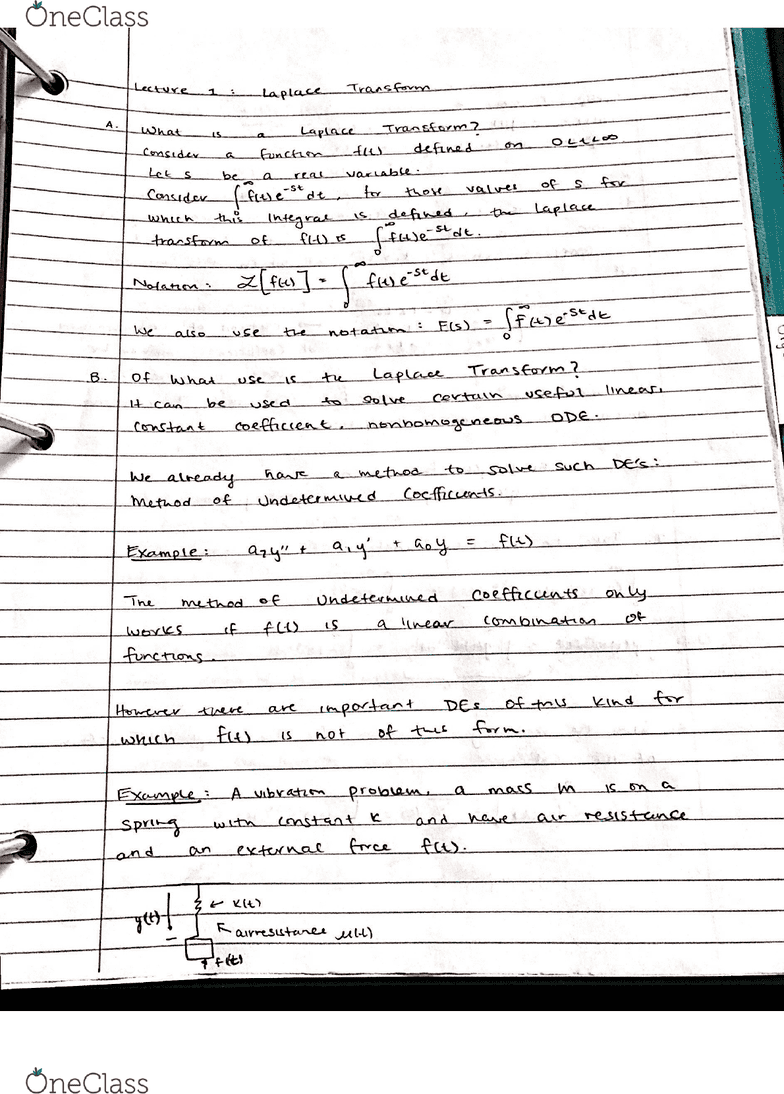 OneClass
Lecture 1 : Laplace Transform
A. What is a Laplace Transform?
Consider a function f(t) defined on 0<t<∞
Let s be a real variable.
Consider ∫₀^∞ f(t)e^-st dt, for those values of s for
which this integral is defined, the Laplace
transform of f(t) is ∫₀^∞ f(t)e^-st dt.
Notation : L[f(t)] = ∫₀^∞ f(t)e^-st dt
We also use the notation : F(s) = ∫₀^∞ f(t)e^-st dt
B. Of what use is the Laplace Transform?
It can be used to solve certain useful linear,
constant coefficient, nonhomogeneous ODE.
We already have a method to solve such DE's:
Method of Undetermined Coefficients.
Example: a₂y" + a₁y' + a₀y = f(t)
The method of Undetermined Coefficients only
works if f(t) is a linear combination of
functions.
However there are important DEs of this kind for
which f(t) is not of this form.
Example: A vibration problem, a mass m is on a
spring with constant k and have air resistance
and an external force f(t).
y(t) ← k(t)
air resistance μ(t)
↑ f(t)
OneClass